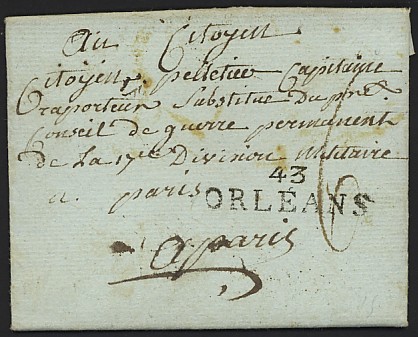 Au Citoyen
Citoyen pelletie Capitaine
raporteur Substitue Du pr.er
Conseil de guerre permanent
de La 17ie Division militaire
a paris
43
ORLÉANS
a paris